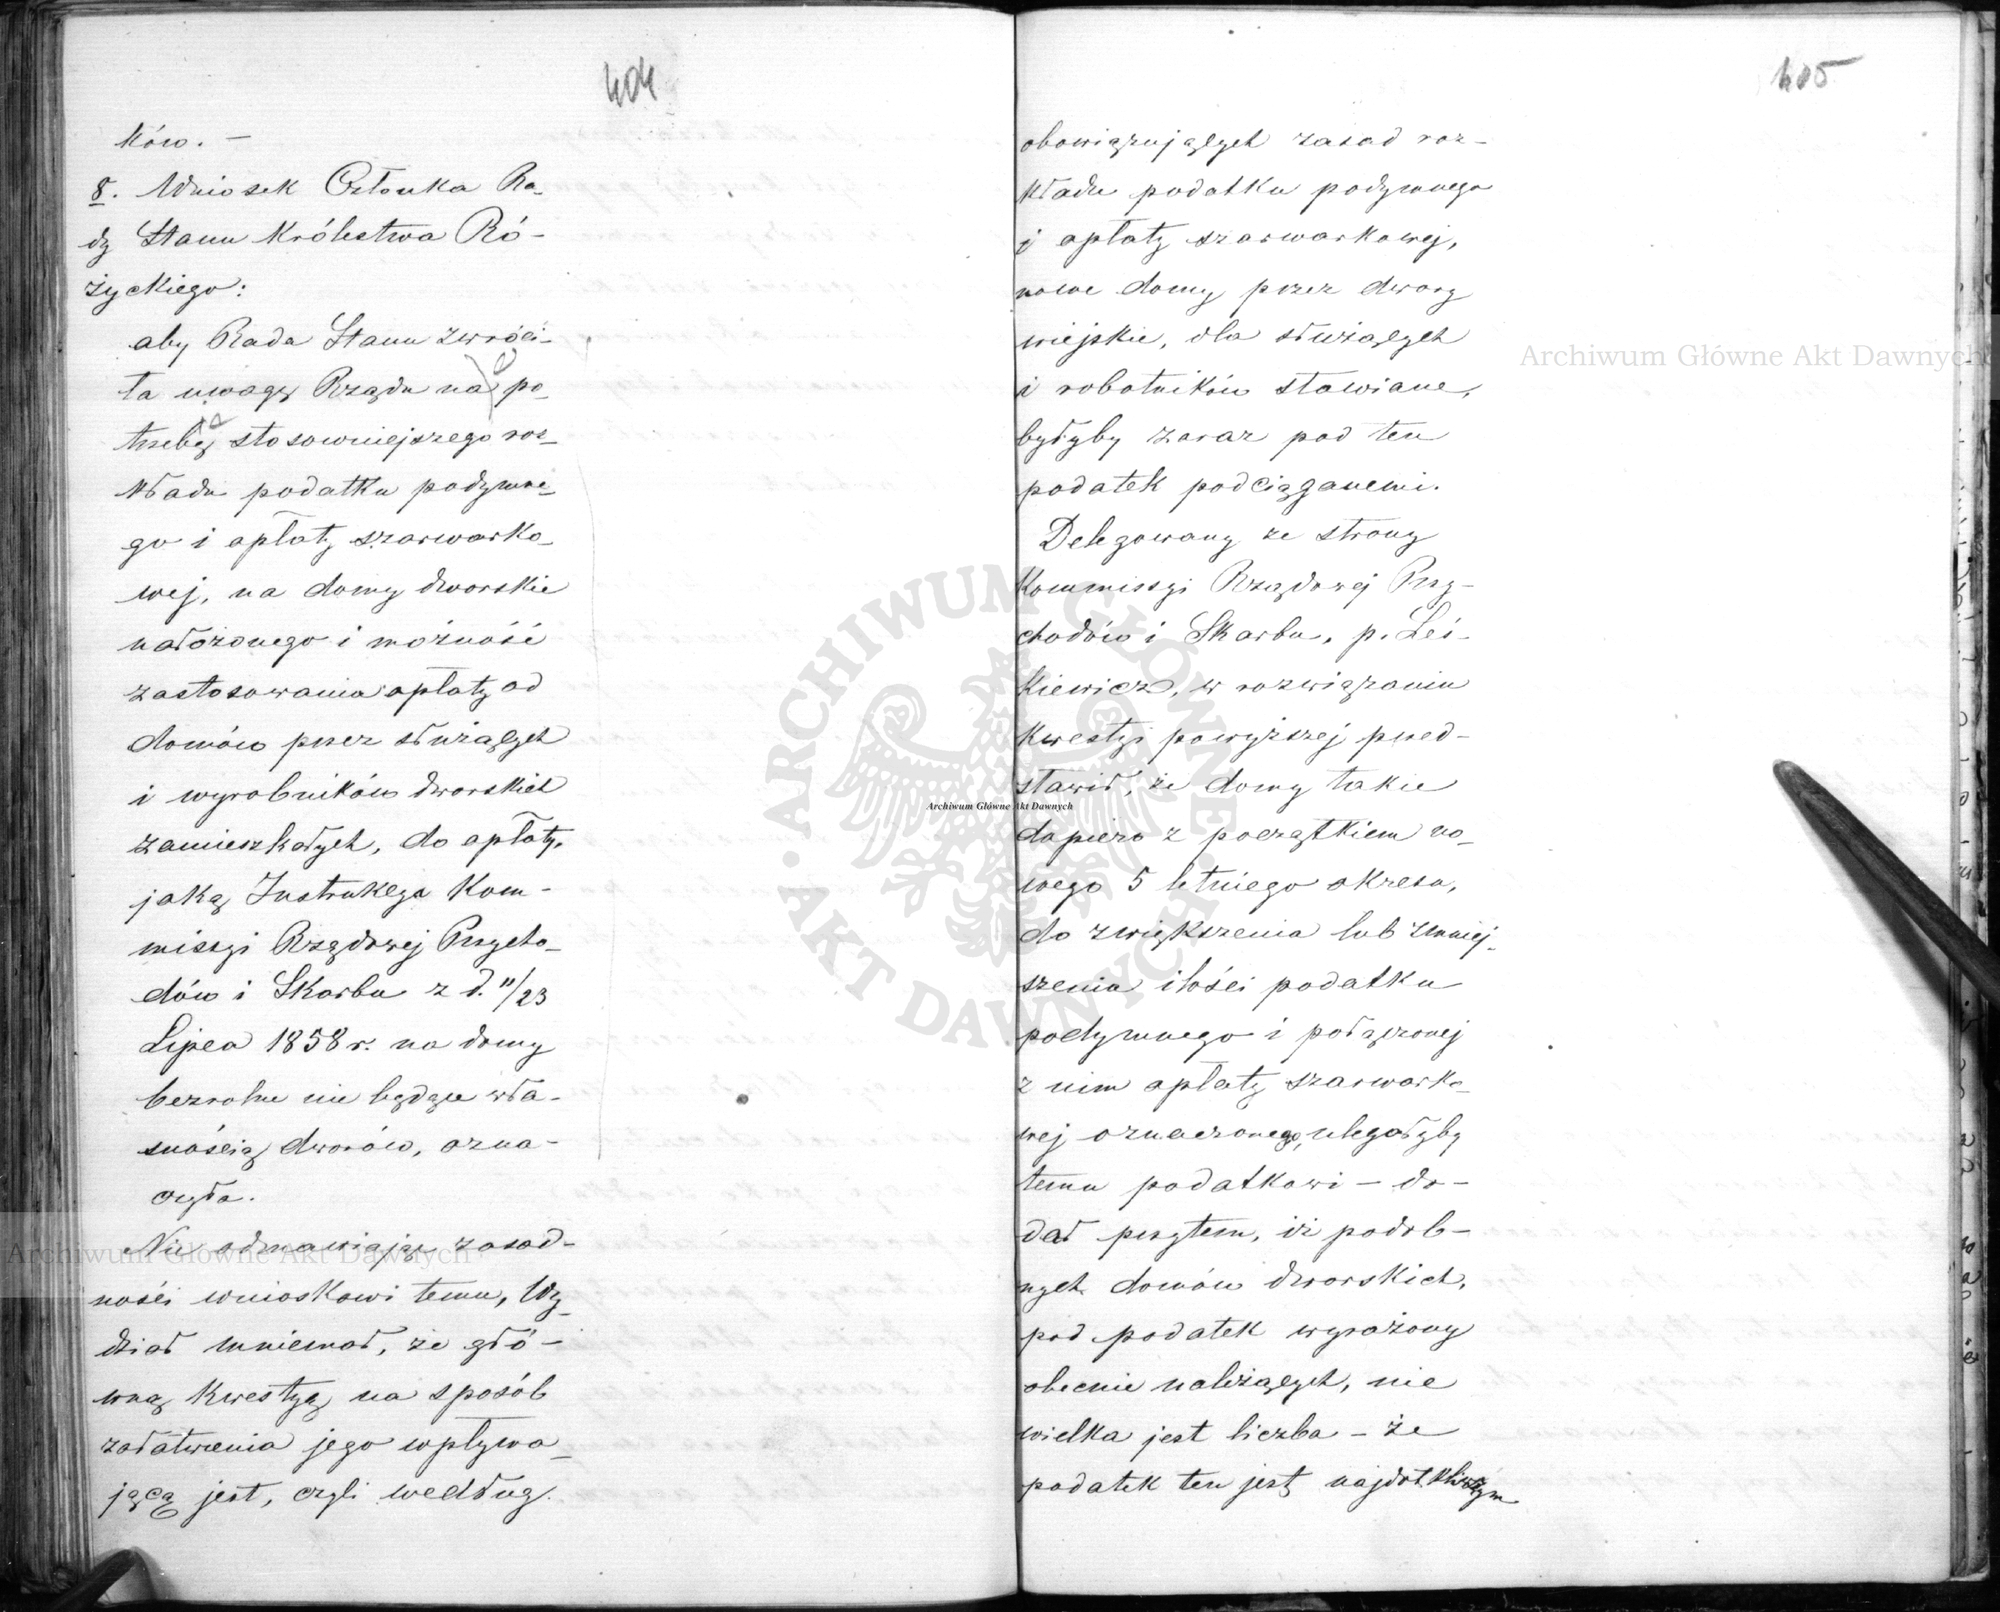 404
ków. —
8. Wniosek Członka Ra-
dy Stanu Królestwa Ró-
życkiego:
aby Rada Stanu zwróci-
ła uwagę Rządu na po-
trzebę stosowniejszego roz-
kładu podatku podymne-
go i opłaty szarwarko-
wej, na domy dworskie
nałożonego i możność
zastosowania opłaty od
domów przez służących
i wyrobników dworskich
zamieszkałych, do opłaty,
jaką Instrukcya Kom-
missyi Rządowej Przycho-
dów i Skarbu z d. 11/23
Lipca 1858 r. na domy
bezrolne nie będące wła-
snością dworów, ozna-
czyła.
Nie odmawiając zasad-
ności wnioskowi temu, Wy-
dział mniemał, że głó-
wną kwestyą na sposób
załatwienia jego wpływa-
jącą jest, czyli według
405
obowiązujących zasad roz-
kładu podatku podymnego
i opłaty szarwarkowej,
nowe domy przez dwory
wiejskie, dla służących
i robotników stawiane,
byłyby zaraz pod ten
podatek podciąganemi.
Delegowany ze strony
Kommissyi Rządowej Przy-
chodów i Skarbu, p. Leś-
kiewicz, w rozwiązaniu
kwestyi powyższej przed-
stawił, że domy takie
dopiero z początkiem no-
wego 5 letniego okresu,
do zwiększenia lub zmniej-
szenia ilości podatku
podymnego i połączonej
z nim opłaty szarwarko-
wej oznaczonego, ulegałyby
temu podatkowi — do-
dał przytem, iż podob-
nych domów dworskich,
pod podatek wyrażony
obecnie należących, nie
wielka jest liczba — że
podatek ten jest najdotkliwszym
Archiwum Główne Akt Dawnych
Archiwum Główne Akt Dawnych
Archiwum Główne Akt Dawnych
ARCHIWUM GŁÓWNE · AKT DAWNYCH ·